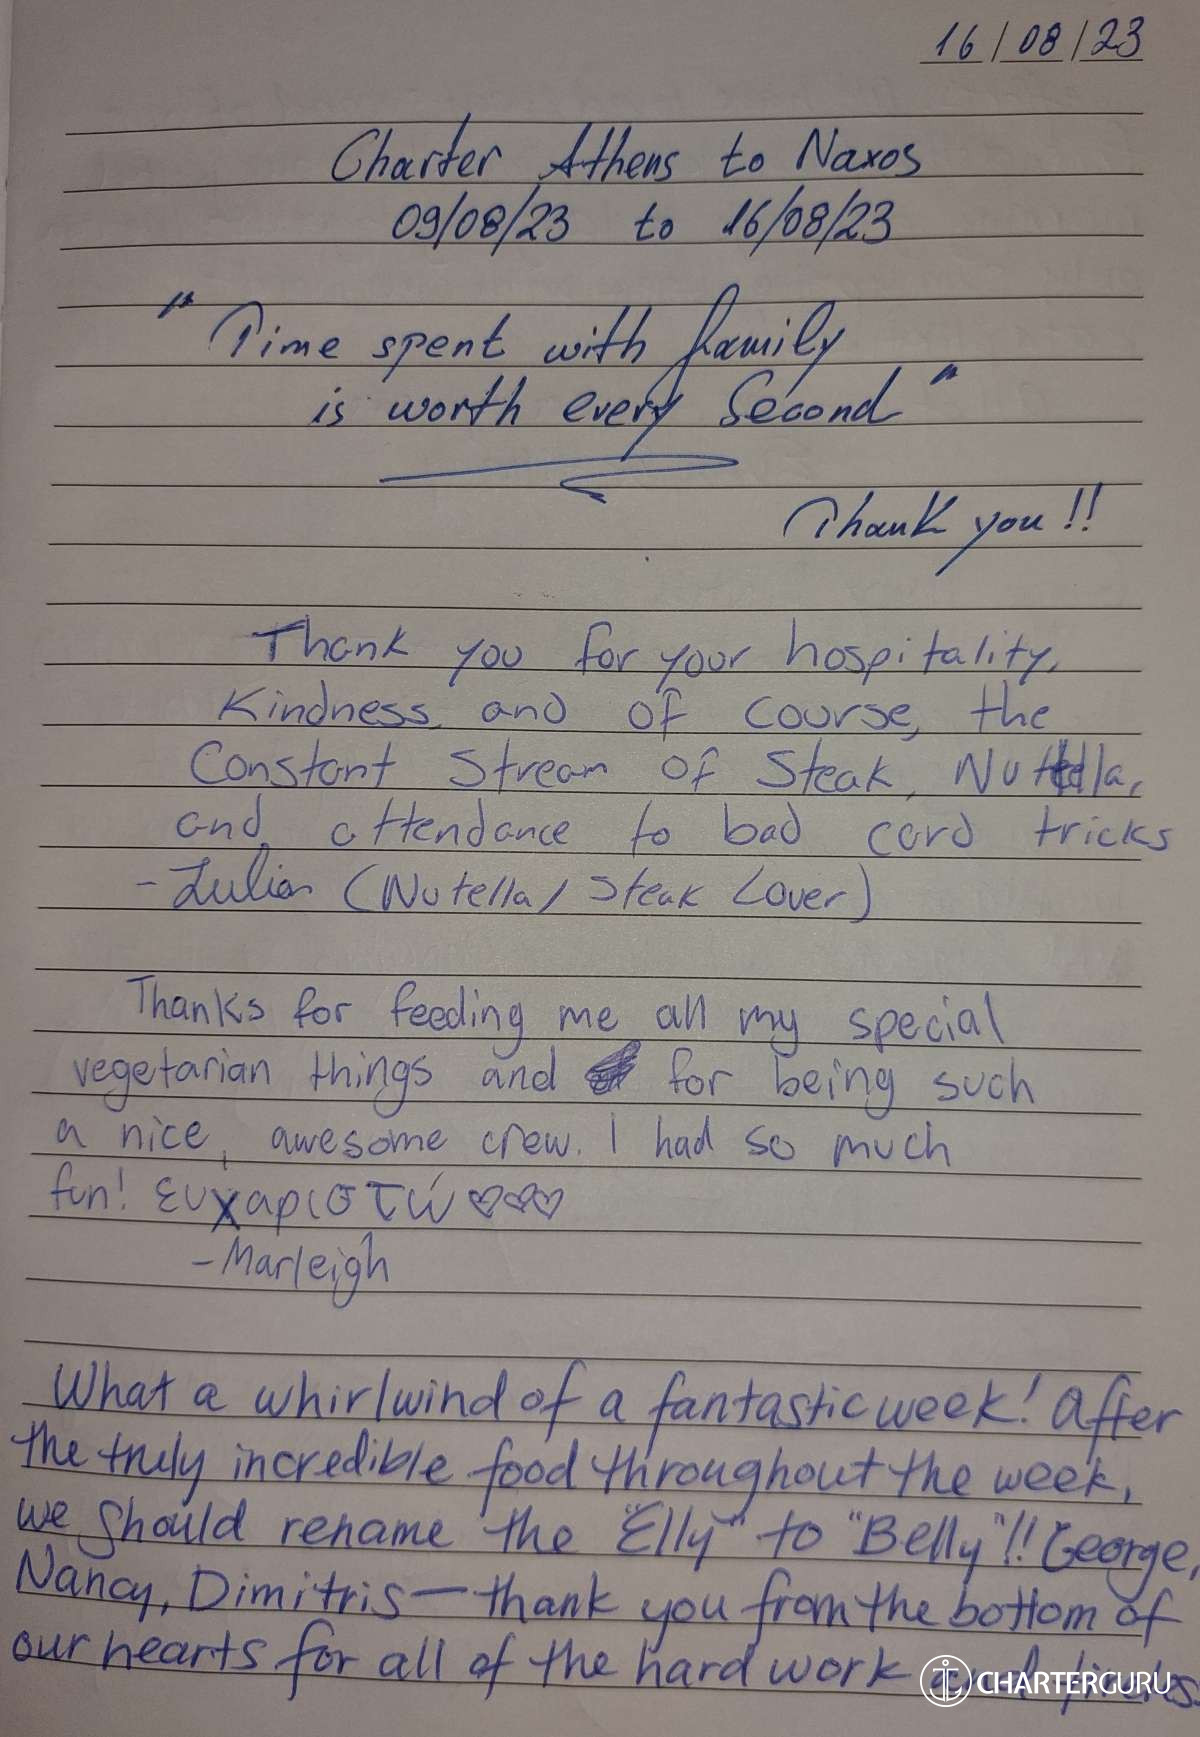 16/08/23
Charter Athens to Naxos
09/08/23 to 16/08/23
"Time spent with family
is worth every Second"
Thank you!!
Thank you for your hospitality,
Kindness, and of course, the
Constant Stream of Steak, Nutella,
and attendance to bad card tricks
- Julian (Nutella/Steak Lover)
Thanks for feeding me all my special
vegetarian things and for being such
a nice, awesome crew. I had so much
fun! ευχαριστώ ♡♡♡
- Marleigh
What a whirlwind of a fantastic week! After
the truly incredible food throughout the week,
we should rename the "Elly" to "Belly"!! George,
Nancy, Dimitris — thank you from the bottom of
our hearts for all of the hard work and
CHARTERGURU